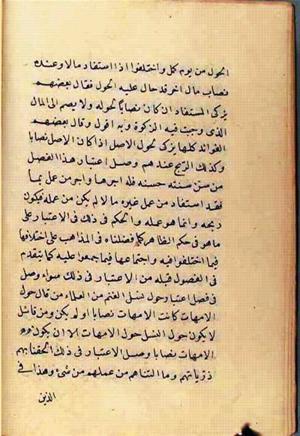 الحول من يوم كمل واختلفوا اذا استفاد مالا وعنده
نصاب مال اخر قد حال عليه الحول فقال بعضهم
يزكى المستفاد ان كان نصابا لحوله ولا يضم الى المال
الذى وجبت فيه الزكوة وبه اقول وقال بعضهم
الفوائد كلها يزكى لحول الاصل اذا كان الاصل نصابا
وكذلك الربح عندهم وصل اعتبار هذا الفصل
من سن سنة حسنة فله اجرها واجر من عمل بها
فقد استفاد من عمل غيره ما لا يكن من عمله فيكون
ربحه وانما هو عمله والحكم في ذلك في الاعتبار على
ما هو في حكم الظاهر كما فصلناه في المذاهب على اختلافها
فيما اختلفوا فيه واجتماعها فيما اجمعوا عليه كما يتقدم
في الفصول قبله من الاعتبار في ذلك سواء وصل
في فصل اعتبار حول نسل الغنم من العلماء من قال حول
الامهات كانت الامهات نصابا او لم يكن ومن قائل
لا يكون حول النسل حول الامهات الا ان يكون
الامهات نصابا وصل الاعتبار في ذلك الحقنا بهم
ذرياتهم وما التناهم من عملهم من شئ وهذا في
الذين